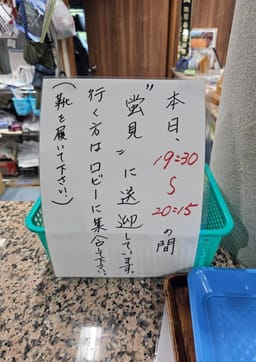 本日、19:30〜20:15の間
"蛍見"に送迎しています。
行く方はロビーに集合して下さい。
(靴を履いて下さい。)